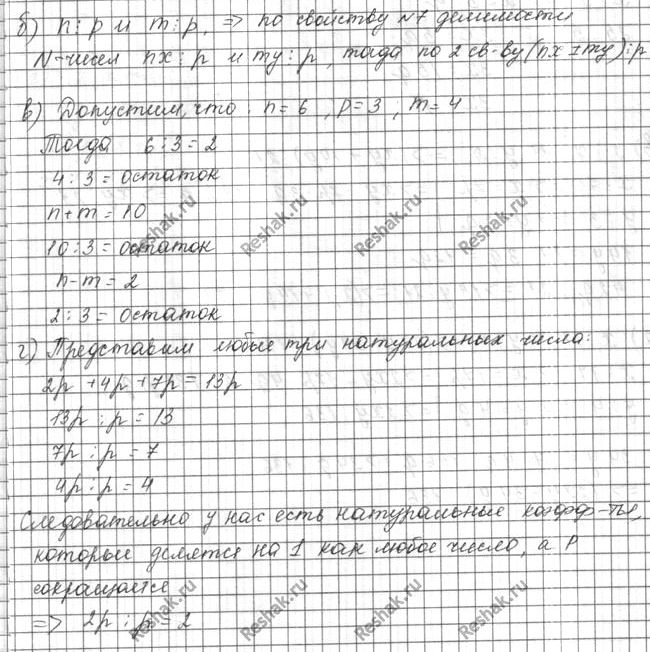 б) n⋮p и m⋮p, => по свойству №7 делимости
N-чисел nx⋮p и my⋮p, тогда по 2 св-ву (nx±my)⋮p
в) Допустим, что: n=6, p=3; m=4
Тогда 6:3=2
4:3=остаток
n+m=10
10:3=остаток
n-m=2
2:3=остаток
г) Представим любые три натуральных числа:
2p+4p+7p=13p
13p:p=13
7p:p=7
4p:p=4
Следовательно у нас есть натуральные коэфф-ты,
которые делятся на 1 как любое число, а P
сокращается
=> 2p:p=2
Reshak.ru
Reshak.ru
Reshak.ru
Reshak.ru
Reshak.ru
Reshak.ru
Reshak.ru
Reshak.ru